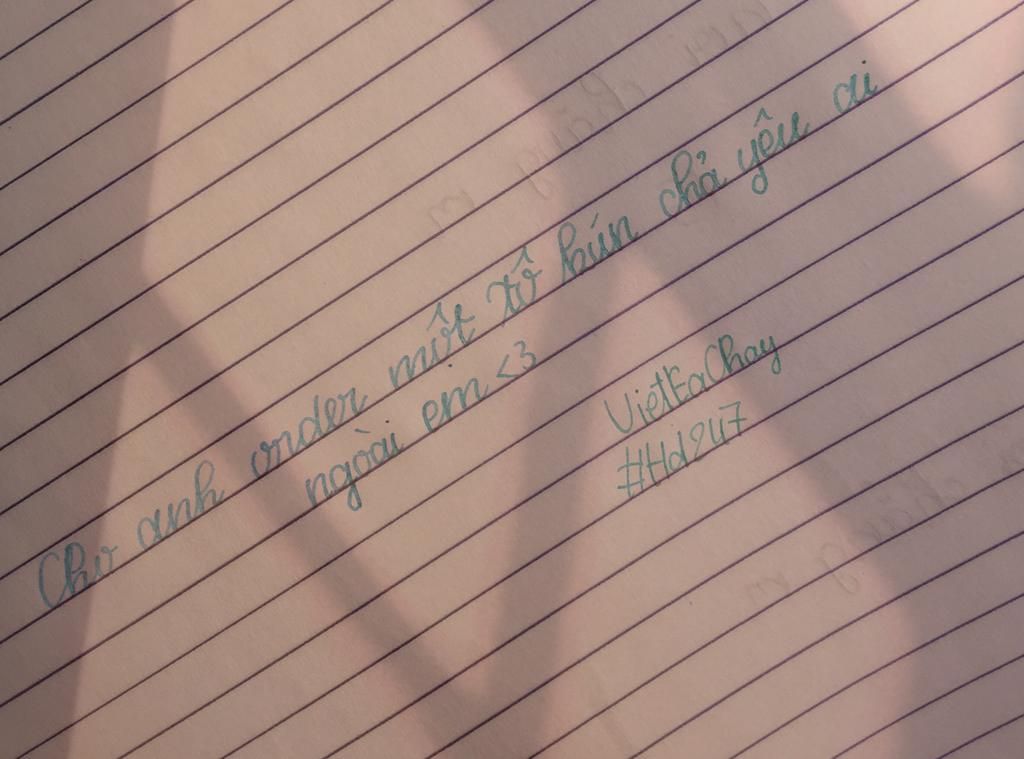 Cho anh order một tô bún chả yêu ai
ngoài em <3
VietEaChay
#Hd247